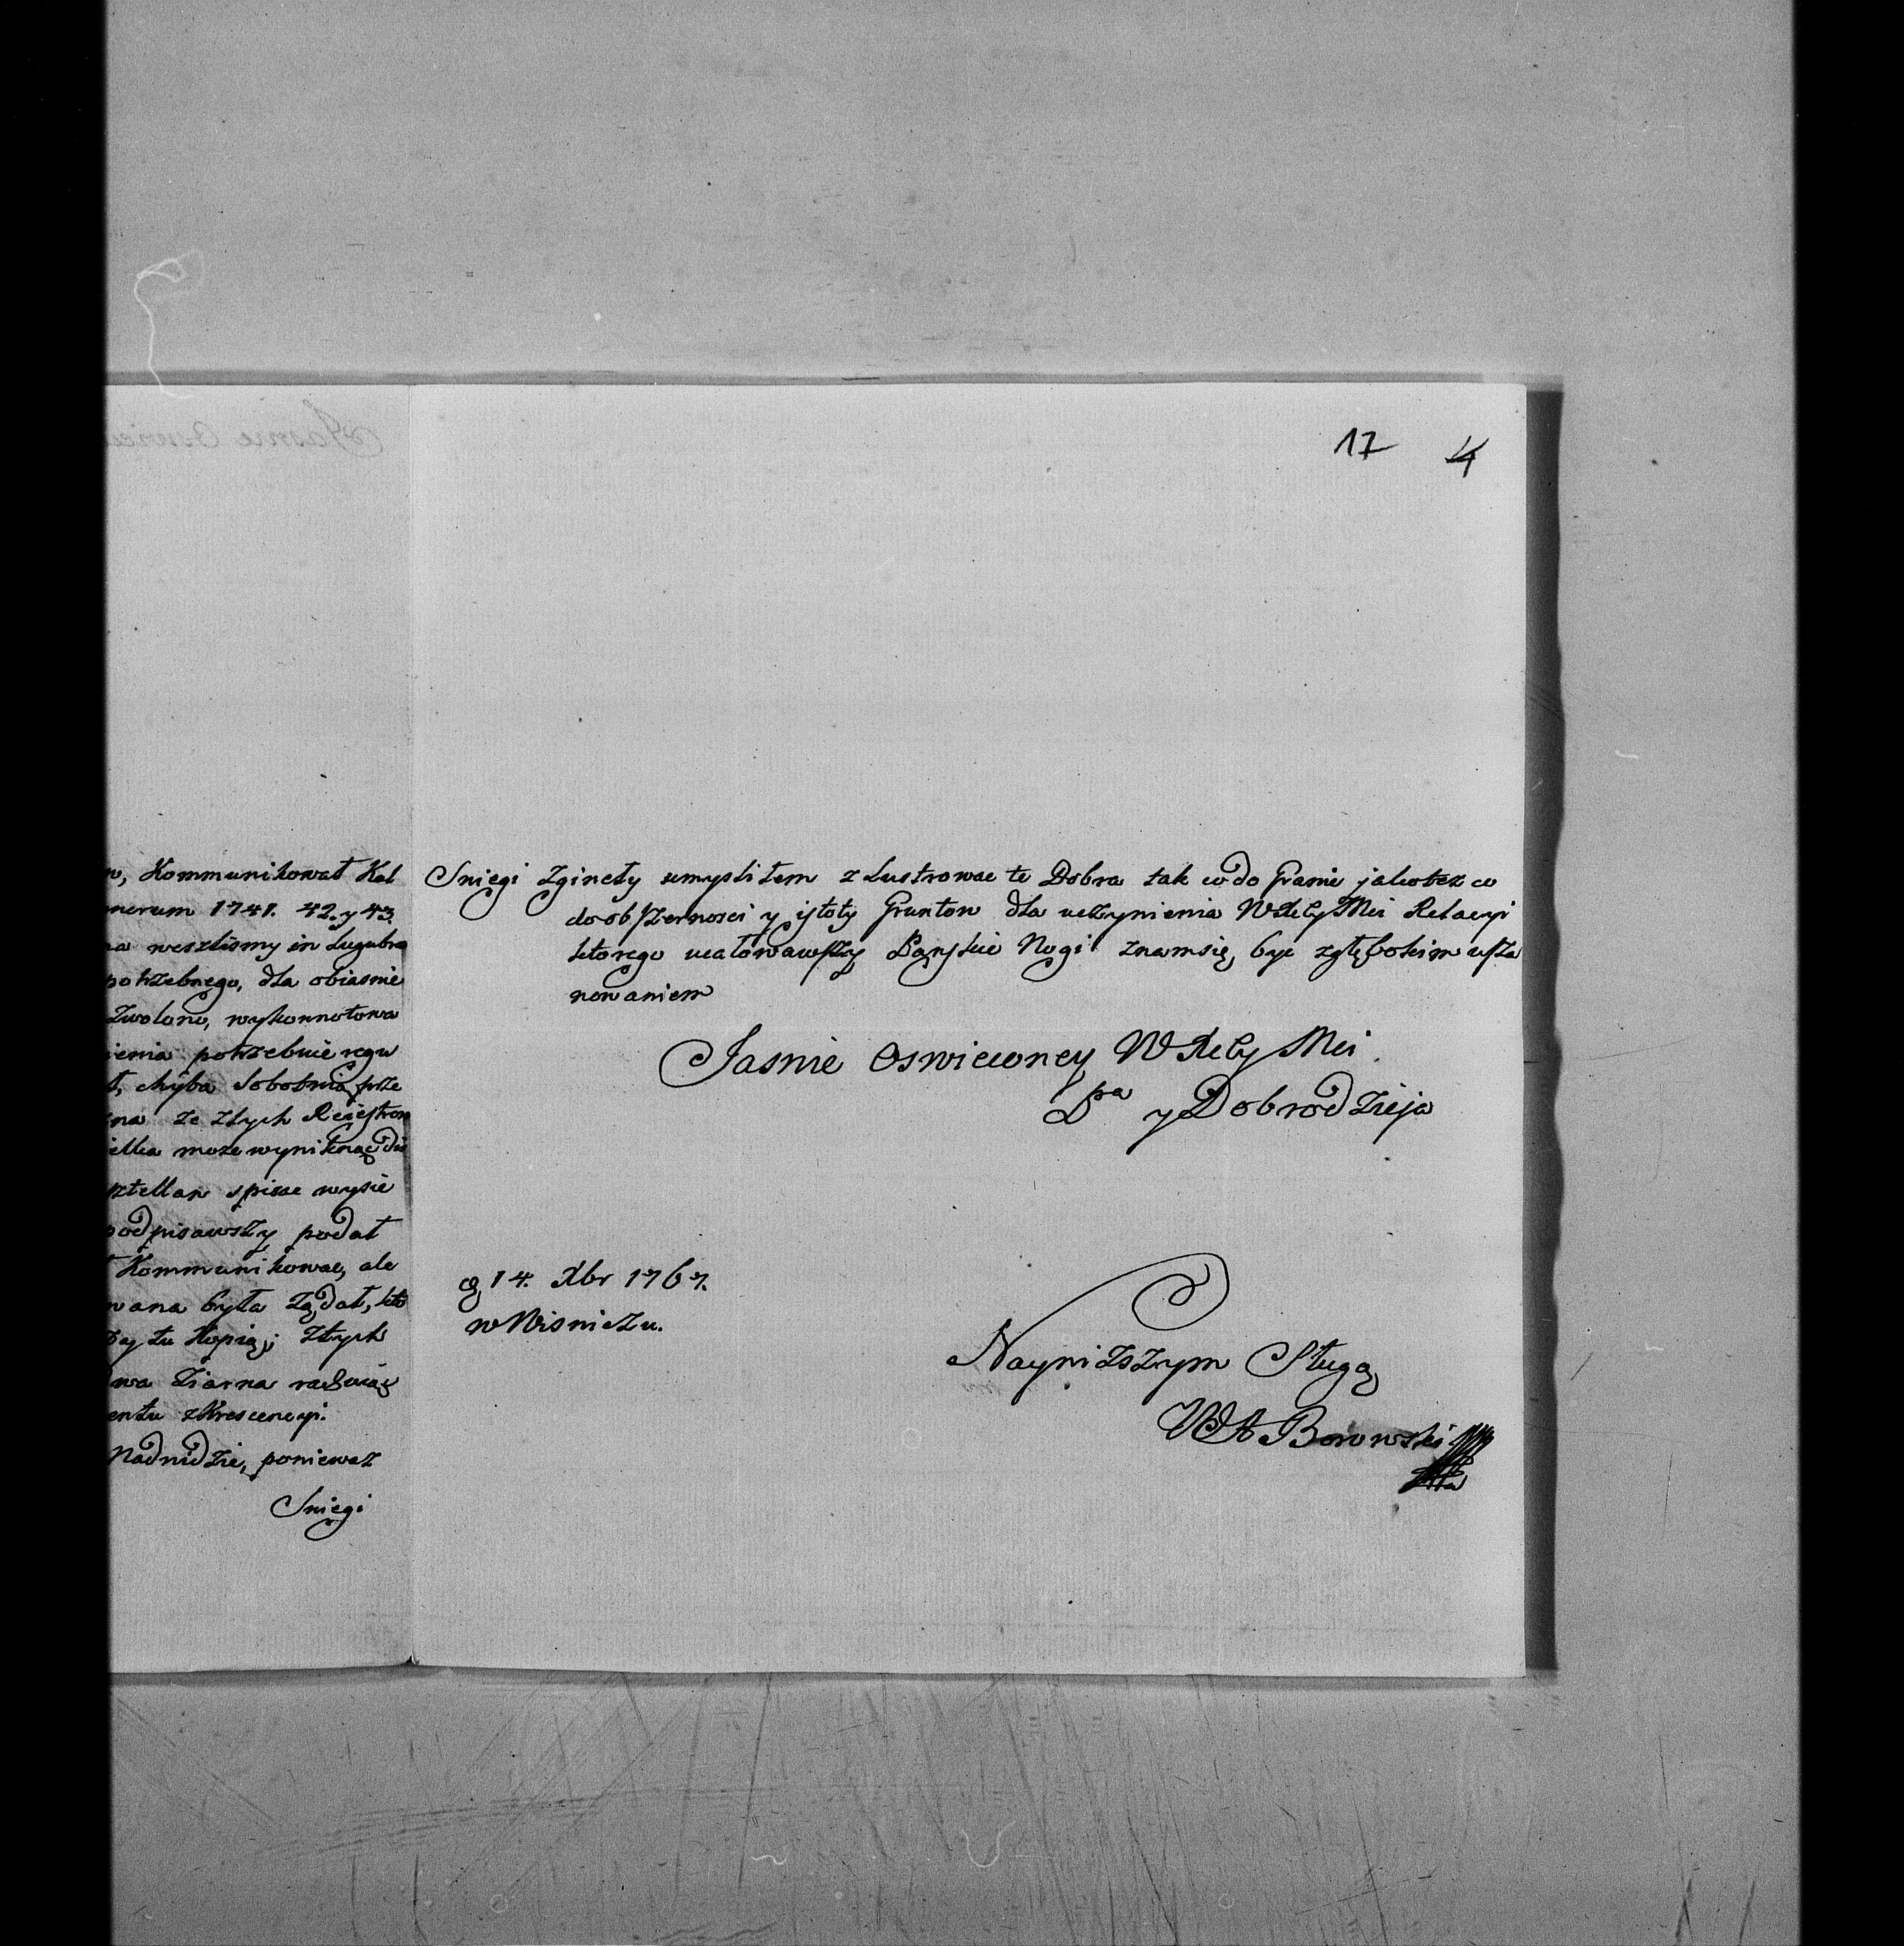 17 4
w, Kommunikował Kal
nerum 1741. 42. y 43.
na weszlismy in Lugubra
potrzebnego, dla obiasnie
Zwolono, wykonnotowa
ienia potrzebnie regu
t, chyba Sobotnia prze
zna ze złych Reiestrow
ielka moze wyniknąć
sztellan spisac wysie
podpisawszy podał
t Kommunikowac, ale
wana była Ządał, kto
tu Kopią; Złych
wa Ziarna rachuiąc
entu z Krescencyi.
Nadnidzie, poniewaz
Sniegi
Sniegi Zginęły umyslilem zLustrowac te Dobra tak co do Granic jakotez co
do obszernosci y istoty Gruntow dla uczynienia WXcyMci Relacyi
ktorego ucałowawszy Pańskie Nogi znamsię byc zgłębokim usza
nowaniem
Jasnie Oswieconey WXcyMci
Pa y Dobrodzieja
14. Xbr 1767.
w Wisniczu.
Nayniższym Sługą
WA Borowski